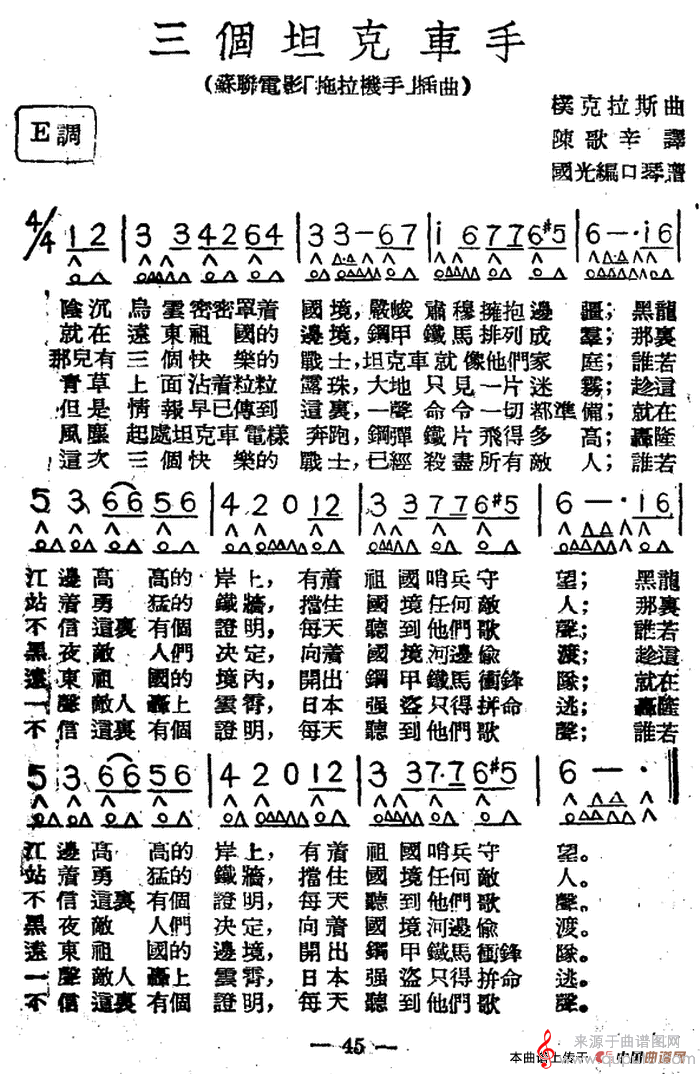 三個坦克車手
(蘇聯電影「拖拉機手」插曲)
E調
樸克拉斯曲
陳歌辛譯
國光編口琴譜
4/4 12 | 3 3 42 64 | 33 — 67 | i 6 77 6#5 | 6 — · i6
陰沉烏雲密密罩着國境,嚴峻肅穆擁抱邊疆;黑龍
就在遠東祖國的邊境,鋼甲鐵馬排列成羣;那裏
那兒有三個快樂的戰士,坦克車就像他們家庭;誰若
青草上面沾着粒粒露珠,大地只見一片迷霧;趁這
但是情報早已傳到這裏,一聲命令一切都準備;就在
風塵起處坦克車電樣奔跑,鋼彈鐵片飛得多高;轟隆
這次三個快樂的戰士,已經殺盡所有敵人;誰若
5 3 66 56 | 4 2 0 12 | 3 33 77 6#5 | 6 — · i6
江邊高高的岸上,有着祖國哨兵守望;黑龍
站着勇猛的鐵牆,擋住國境任何敵人;那裏
不信這裏有個證明,每天聽到他們歌聲;誰若
黑夜敵人們決定,向着國境河邊偷渡;趁這
遠東祖國的境內,開出鋼甲鐵馬衝鋒隊;就在
一聲敵人轟上雲霄,日本强盜只得拚命逃;轟隆
不信這裏有個證明,每天聽到他們歌聲;誰若
5 3 66 56 | 4 2 0 12 | 3 33 7·7 6#5 | 6 — ·
江邊高高的岸上,有着祖國哨兵守望。
站着勇猛的鐵牆,擋住國境任何敵人。
不信這裏有個證明,每天聽到他們歌聲。
黑夜敵人們決定,向着國境河邊偷渡。
遠東祖國的邊境,開出鋼甲鐵馬衝鋒隊。
一聲敵人轟上雲霄,日本强盜只得拚命逃。
不信這裏有個證明,每天聽到他們歌聲。
— 45 —
来源于曲谱图网
本曲谱上传于 中国曲谱网